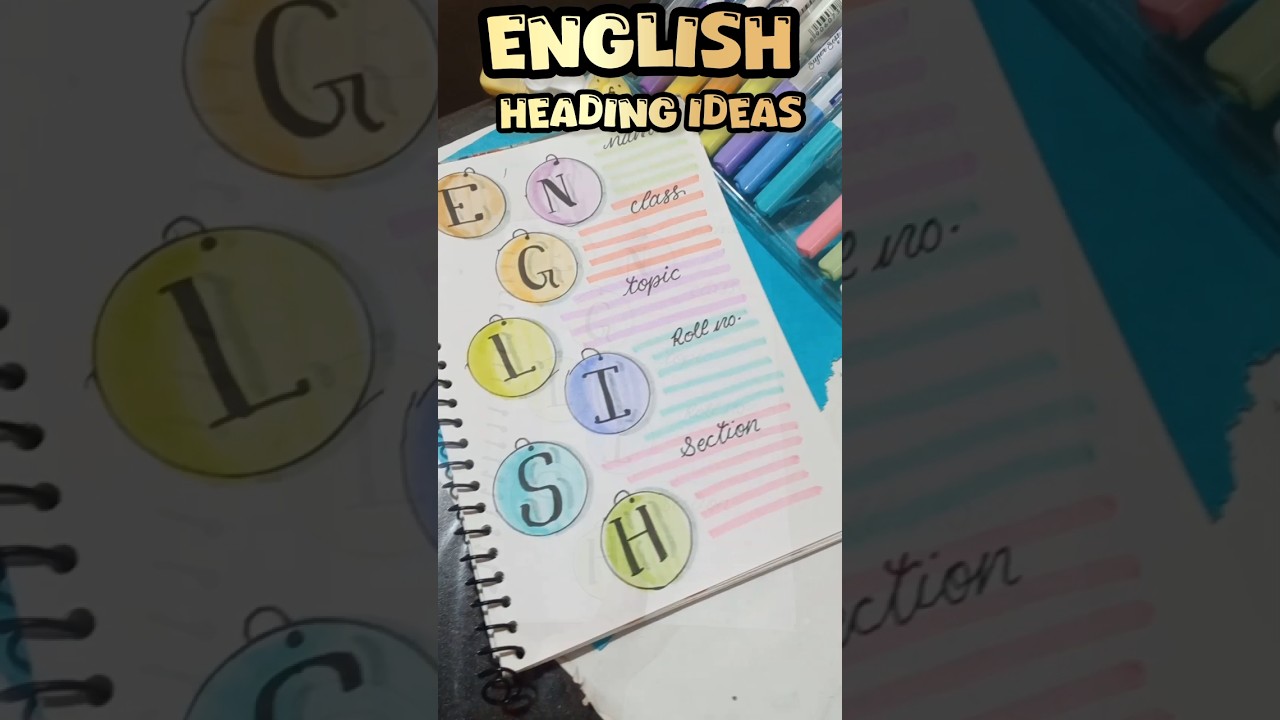 ENGLISH
HEADING IDEAS
name
class
topic
Roll no.
Section
E N
G
L
I
S
H